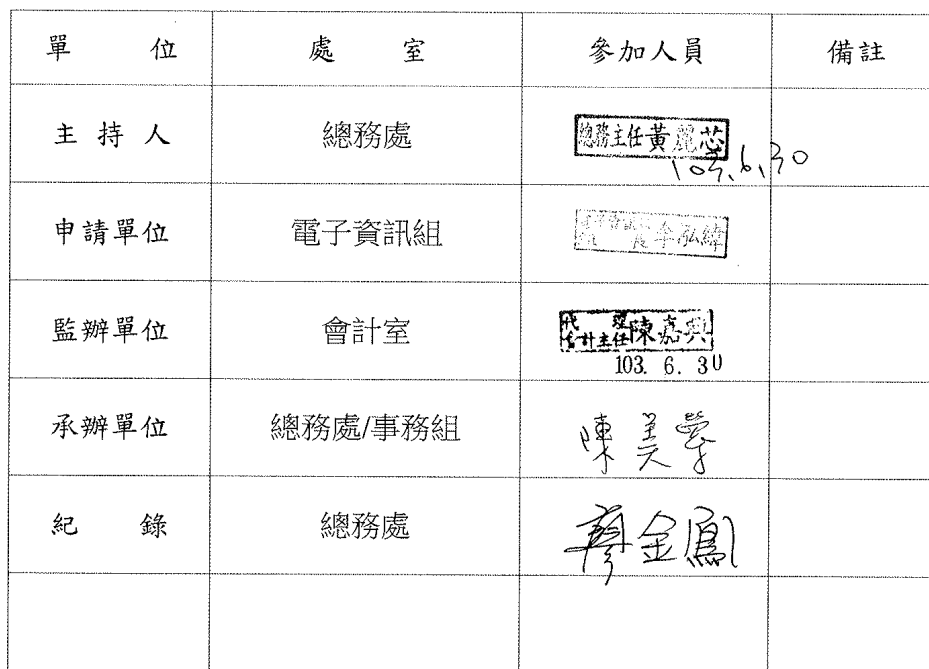 單 位 處 室 參加人員 備註
主 持 人 總務處 總務主任黃麗芯
103.6.30
申請單位 電子資訊組 李泓緯
監辦單位 會計室 代理會計主任陳嘉興
103. 6. 30
承辦單位 總務處/事務組 陳美
紀 錄 總務處 廖金鳳